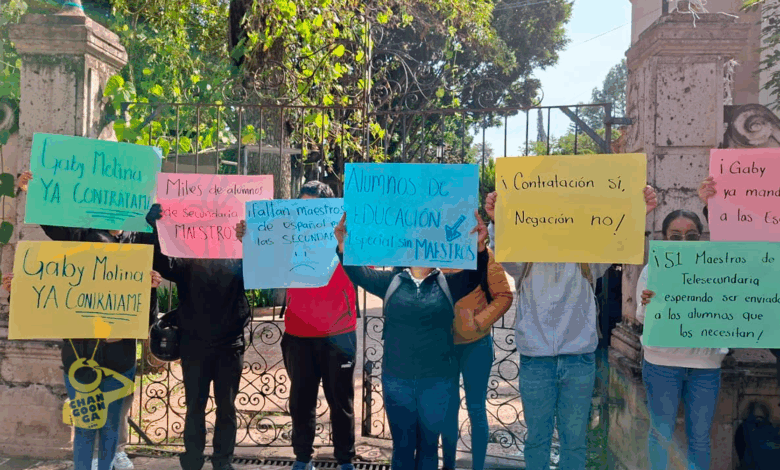 Gaby Molina
YA CONTRÁTAME
Gaby Molina
YA CONTRÁTAME
Miles de alumnos
de secundaria
MAESTROS
¡faltan maestros
de español en
las SECUNDAR
Alumnos de
EDUCACIÓN
Especial sin MAESTROS
¡ Contratación sí,
Negación no!
¡Gaby
ya mand
a las Es
¡51 Maestros de
Telesecundaria
esperando ser enviad
a los alumnos que
los necesitan!
CHAN
GOON
GA